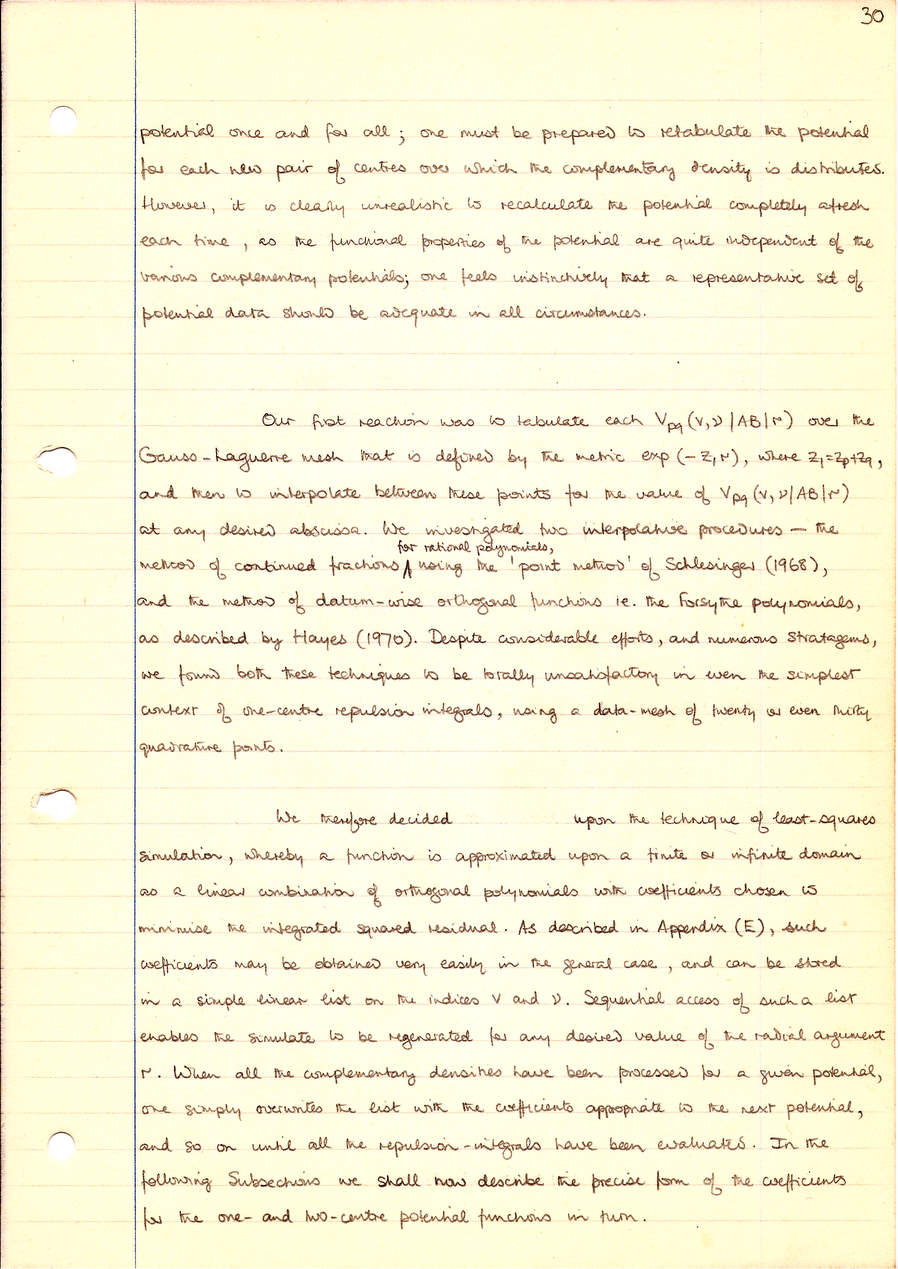 30
potential once and for all; one must be prepared to retabulate the potential
for each new pair of centres over which the complementary density is distributed.
However, it is clearly unrealistic to recalculate the potential completely afresh
each time, as the functional properties of the potential are quite independent of the
various complementary potentials; one feels instinctively that a representative set of
potential data should be adequate in all circumstances.
Our first reaction was to tabulate each Vpq(V,ν|AB|r) over the
Gauss-Laguerre mesh that is defined by the metric exp(-Z₁r), where Z₁=Zp+Zq,
and then to interpolate between these points for the value of Vpq(V,ν|AB|r)
at any desired abscissa. We investigated two interpolative procedures — the
for rational polynomials,
method of continued fractions ⋀ using the 'point method' of Schlesinger (1968),
and the method of datum-wise orthogonal functions ie. the Forsythe polynomials,
as described by Hayes (1970). Despite considerable efforts, and numerous stratagems,
we found both these techniques to be totally unsatisfactory in even the simplest
context of one-centre repulsion integrals, using a data-mesh of twenty or even thirty
quadrature points.
We therefore decided upon the technique of least-squares
simulation, whereby a function is approximated upon a finite or infinite domain
as a linear combination of orthogonal polynomials with coefficients chosen to
minimise the integrated squared residual. As described in Appendix (E), such
coefficients may be obtained very easily in the general case, and can be stored
in a simple linear list on the indices V and ν. Sequential access of such a list
enables the simulate to be regenerated for any desired value of the radial argument
r. When all the complementary densities have been processed for a given potential,
one simply overwrites the list with the coefficients appropriate to the next potential,
and so on until all the repulsion-integrals have been evaluated. In the
following Subsections we shall now describe the precise form of the coefficients
for the one- and two-centre potential functions in turn.